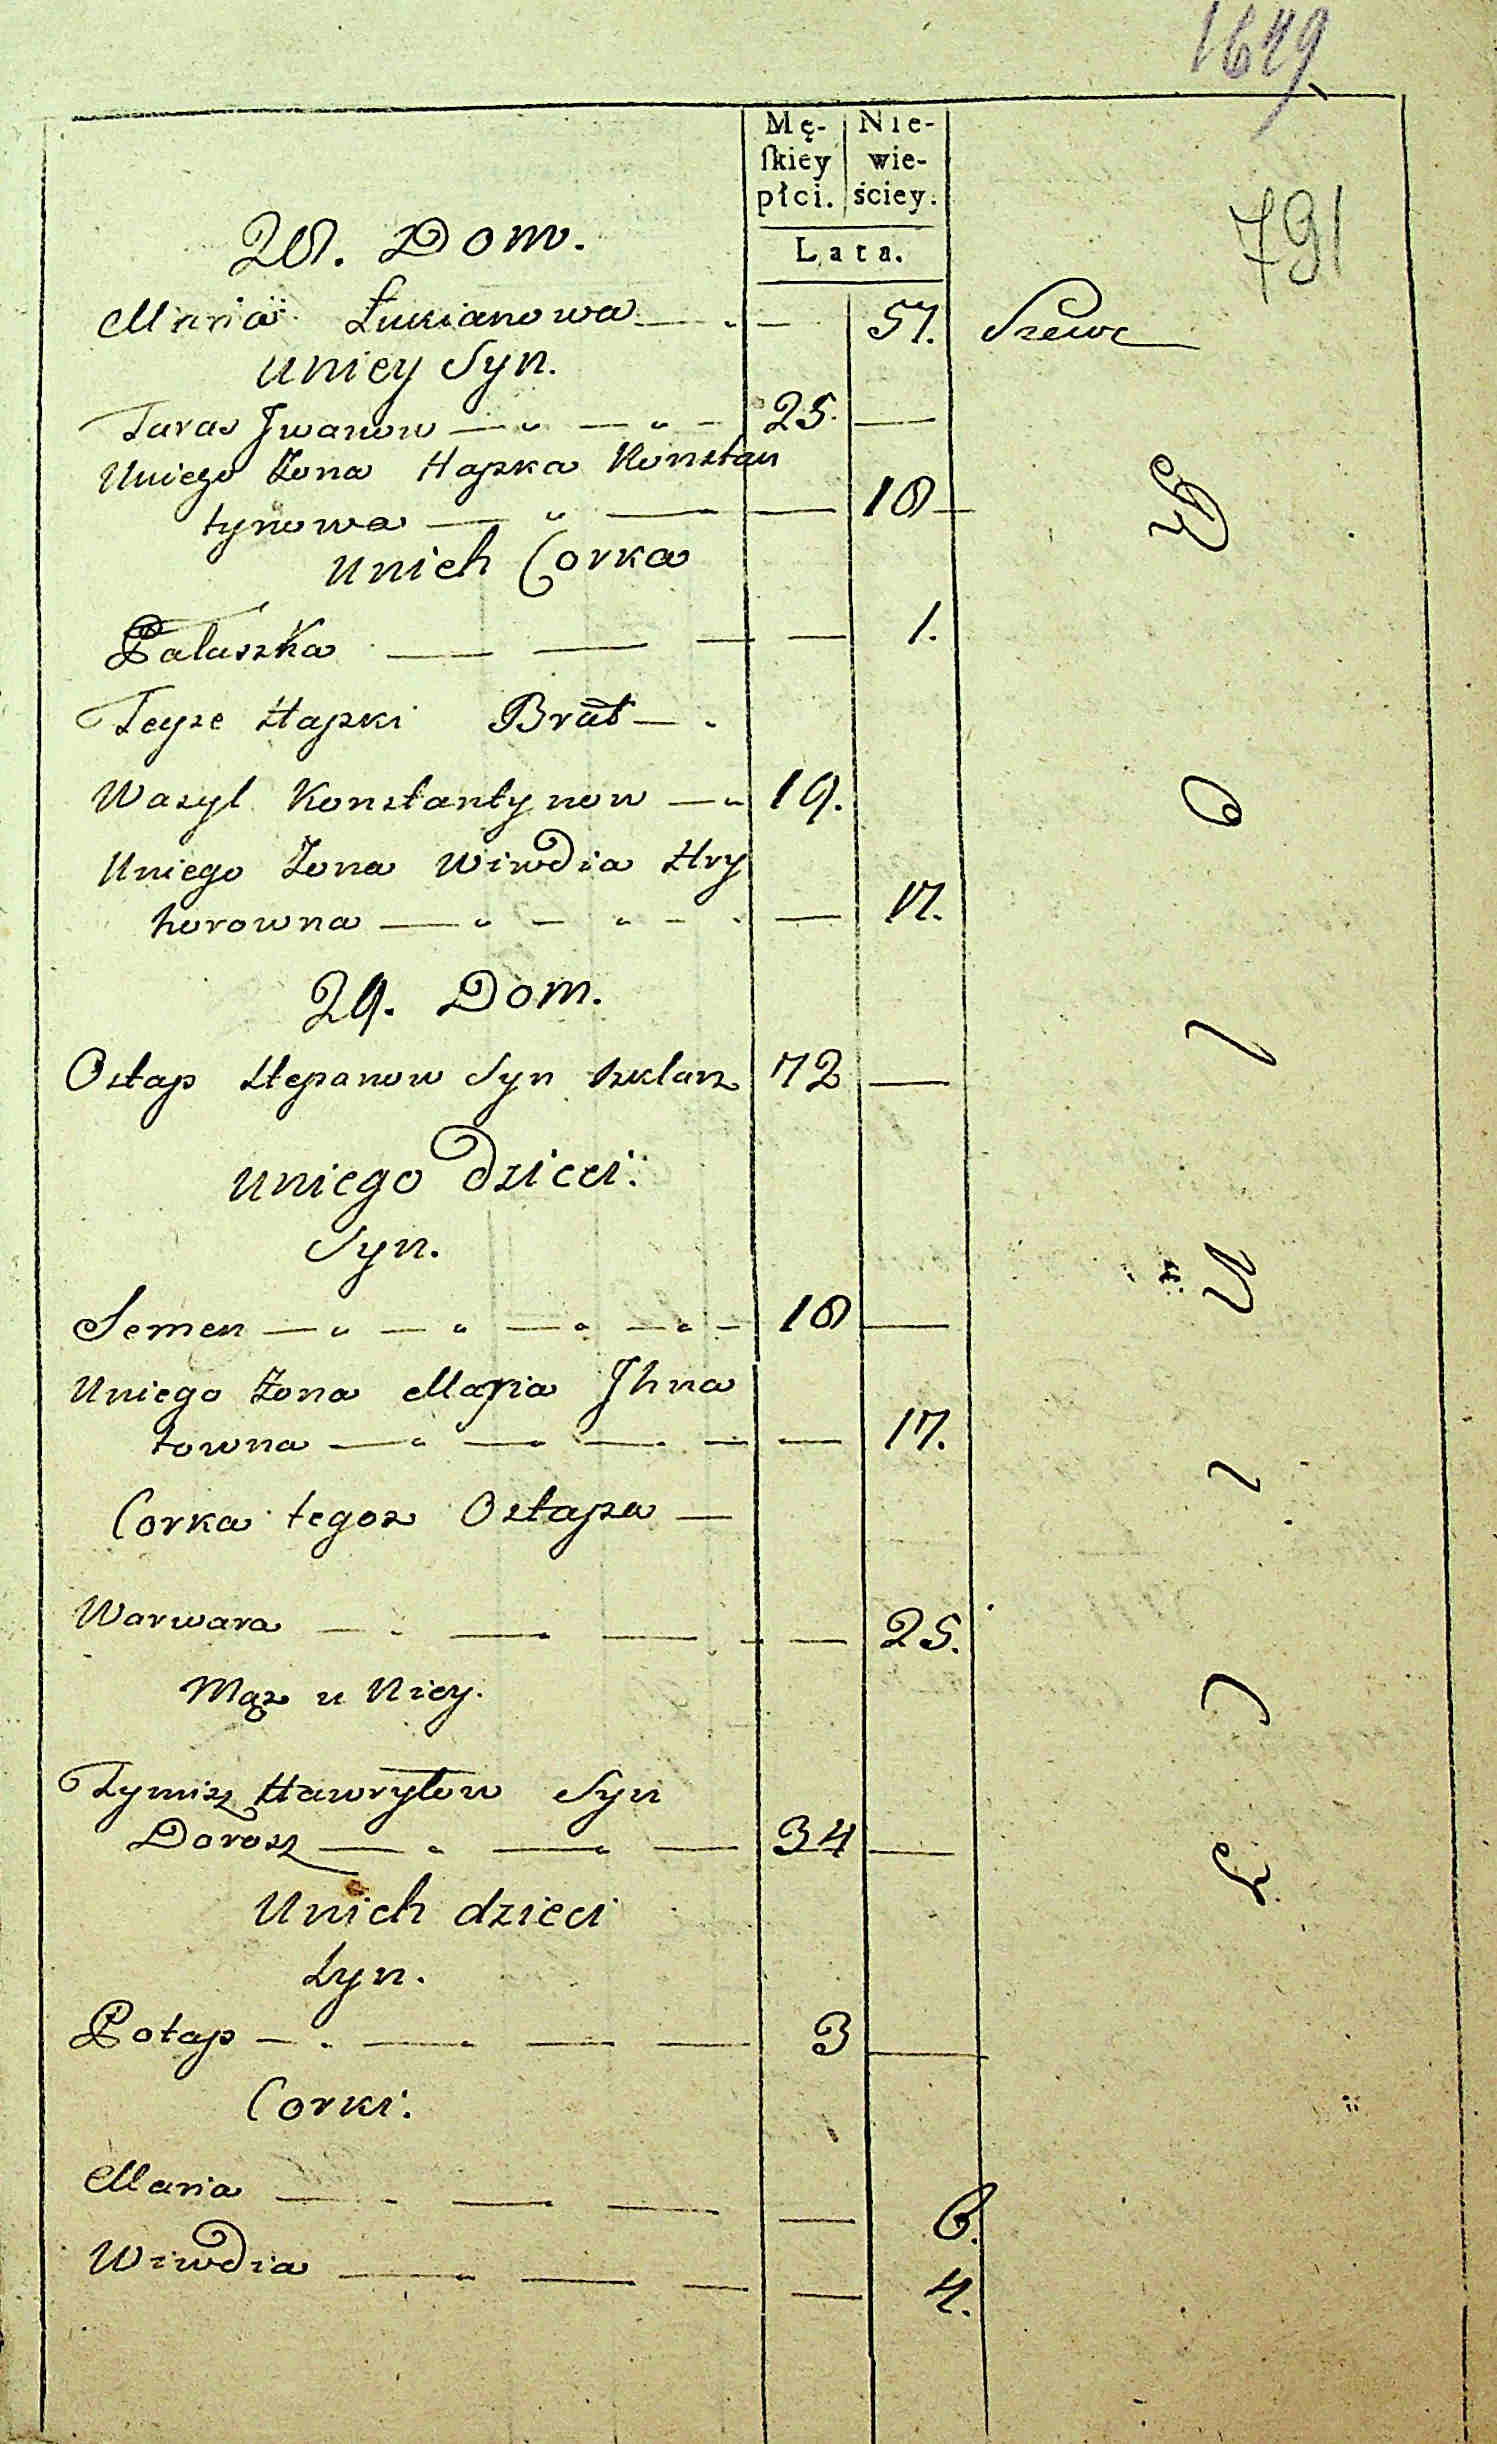 1649
791
Mę-
ſkiey
płci.
Nie-
wie-
ściey.
Lata.
28. Dom.
Maria Łukianowa — — 57. Szewc
uniey Syn.
Taras Jwanow — — 25. —
Uniego Zona Hapka Konstan
tynowa — — — 18 —
unich Corka
Pałaszka — — — — 1.
Teyze Hapki Brat —
Wasyl Konstantynow — 19.
Uniego Zona Wiwdia Hry
horowna — — — — 17.
29. Dom.
Ostap Stepanow Syn szklarz 72 —
uniego dzieci:
Syn.
Semen — — — — — 18 —
Uniego Zona Maria Jhna
towna — — — — — 17.
Corka tegoz Ostapa —
Warwara — — — — — 25.
Mąz u Niey.
Tymisz Hawryłow Syn
Dorosz — — — 34 —
Unich dzieci
Syn.
Potap — — — — 3 —
Corki:
Maria — — — — 6.
Wiwdia — — — — 4.